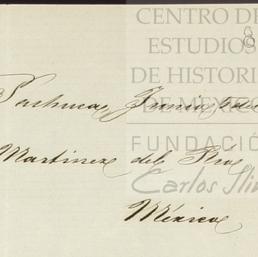 CENTRO DE
ESTUDIOS
DE HISTORI
DE MÉXICO
FUNDACIÓ
Carlos Sli
Pachuca, Junio
Martinez del Rio
México